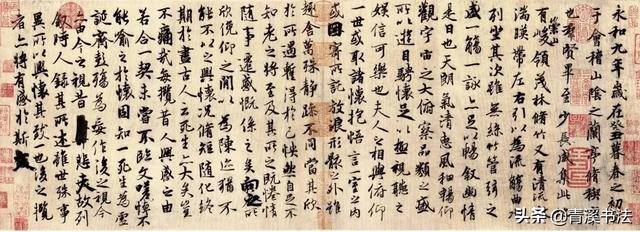 永和九年歲在癸丑暮春之初
于會稽山陰之蘭亭脩稧
也群賢畢至少長咸集此
有崇山峻領茂林脩竹又有清流
湍暎帶左右引以為流觴曲
列坐其次雖無絲竹管弦之
盛一觴一詠亦足以暢敘幽情
是日也天朗氣清惠風和暢仰
觀宇宙之大俯察品類之盛
所以遊目騁懷足以極視聽之
娛信可樂也夫人之相與俯仰
一世或取諸懷抱悟言一室之內
或因寄所託放浪形骸之外雖
趣舍萬殊靜躁不同當其欣
於所遇蹔得於己怏然自足不
知老之將至及其所之既惓情
隨事遷感慨係之矣向之所
欣俛仰之閒以為陳迹猶不
能不以之興懷況脩短隨化終
期於盡古人云死生亦大矣豈
不痛哉每攬昔人興感之由
若合一契未嘗不臨文嗟悼不
能喻之於懷固知一死生為虛
誕齊彭殤為妄作後之視今
亦由今之視昔悲夫故列
敘時人錄其所述雖世殊事
異所以興懷其致一也後之攬
者亦將有感於斯
头条 @青溪书法